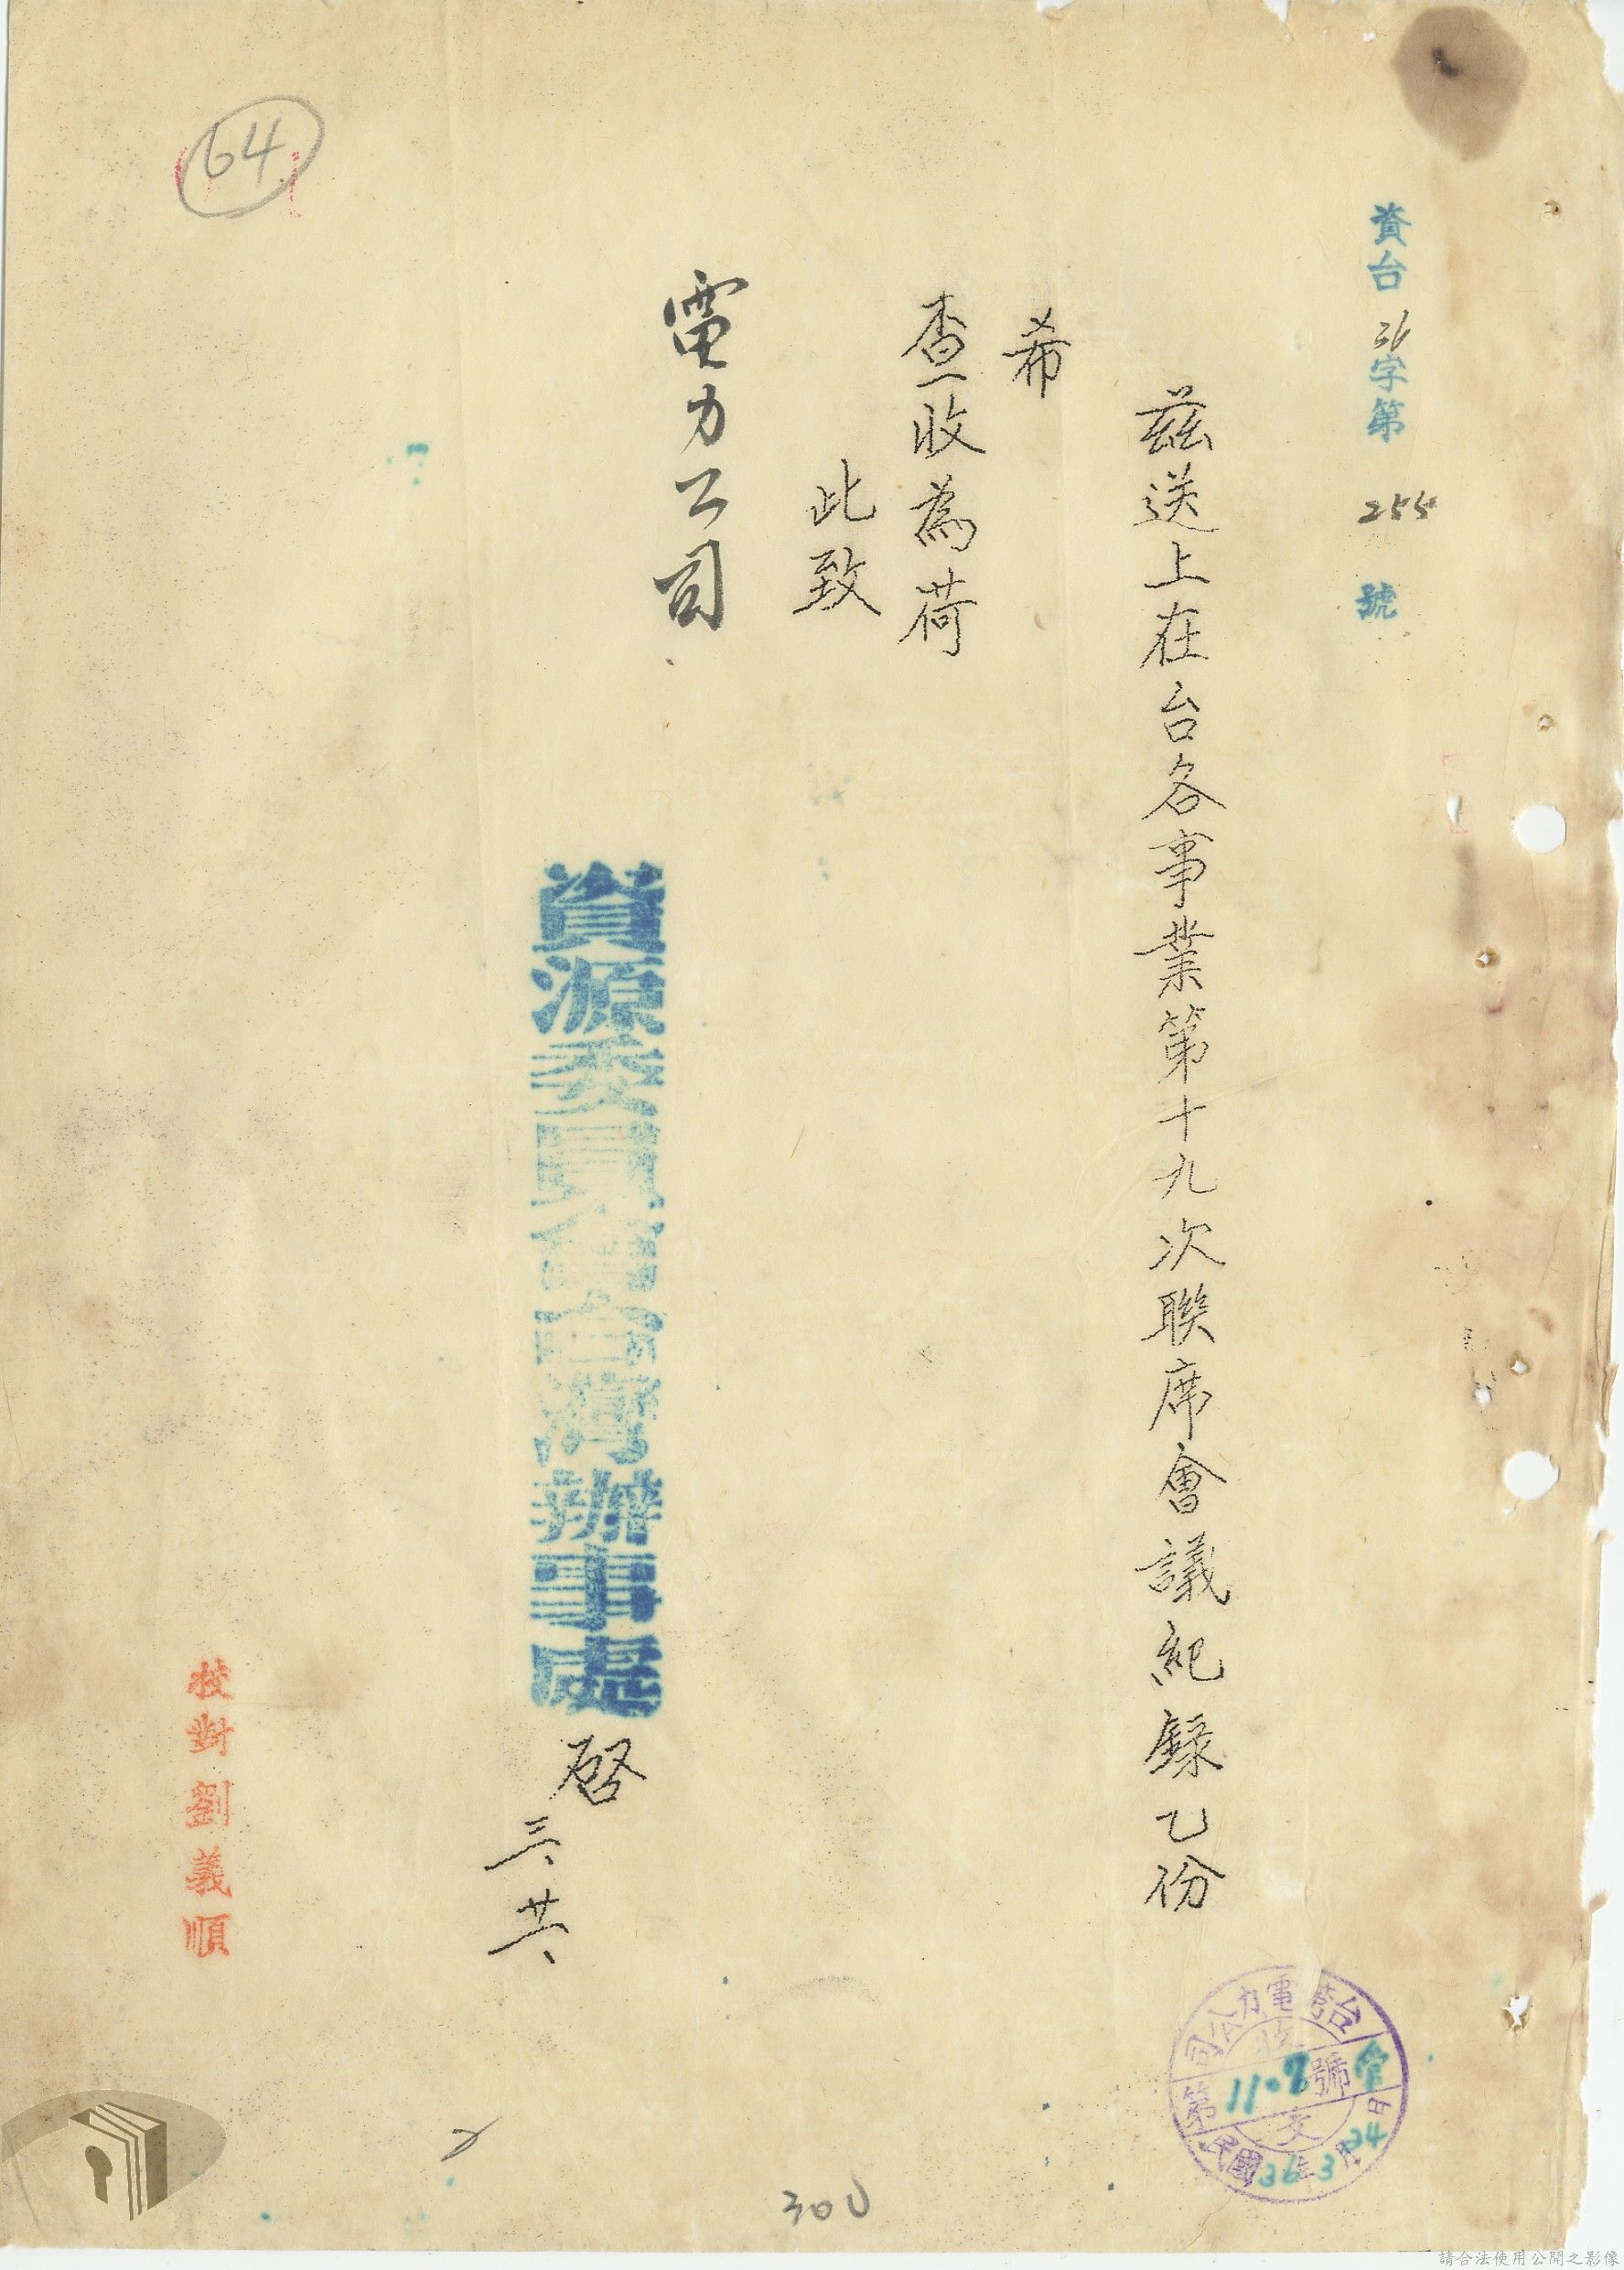 資台36字第255號
茲送上在台各事業第十九次聯席會議紀錄乙份
希
查收為荷
此致
電力公司
資源委員會台灣辦事處啓
三、廿、
校對劉義順
64
台灣電力公司
收文
第1107號
民國36年3月24日
300
請合法使用公開之影像